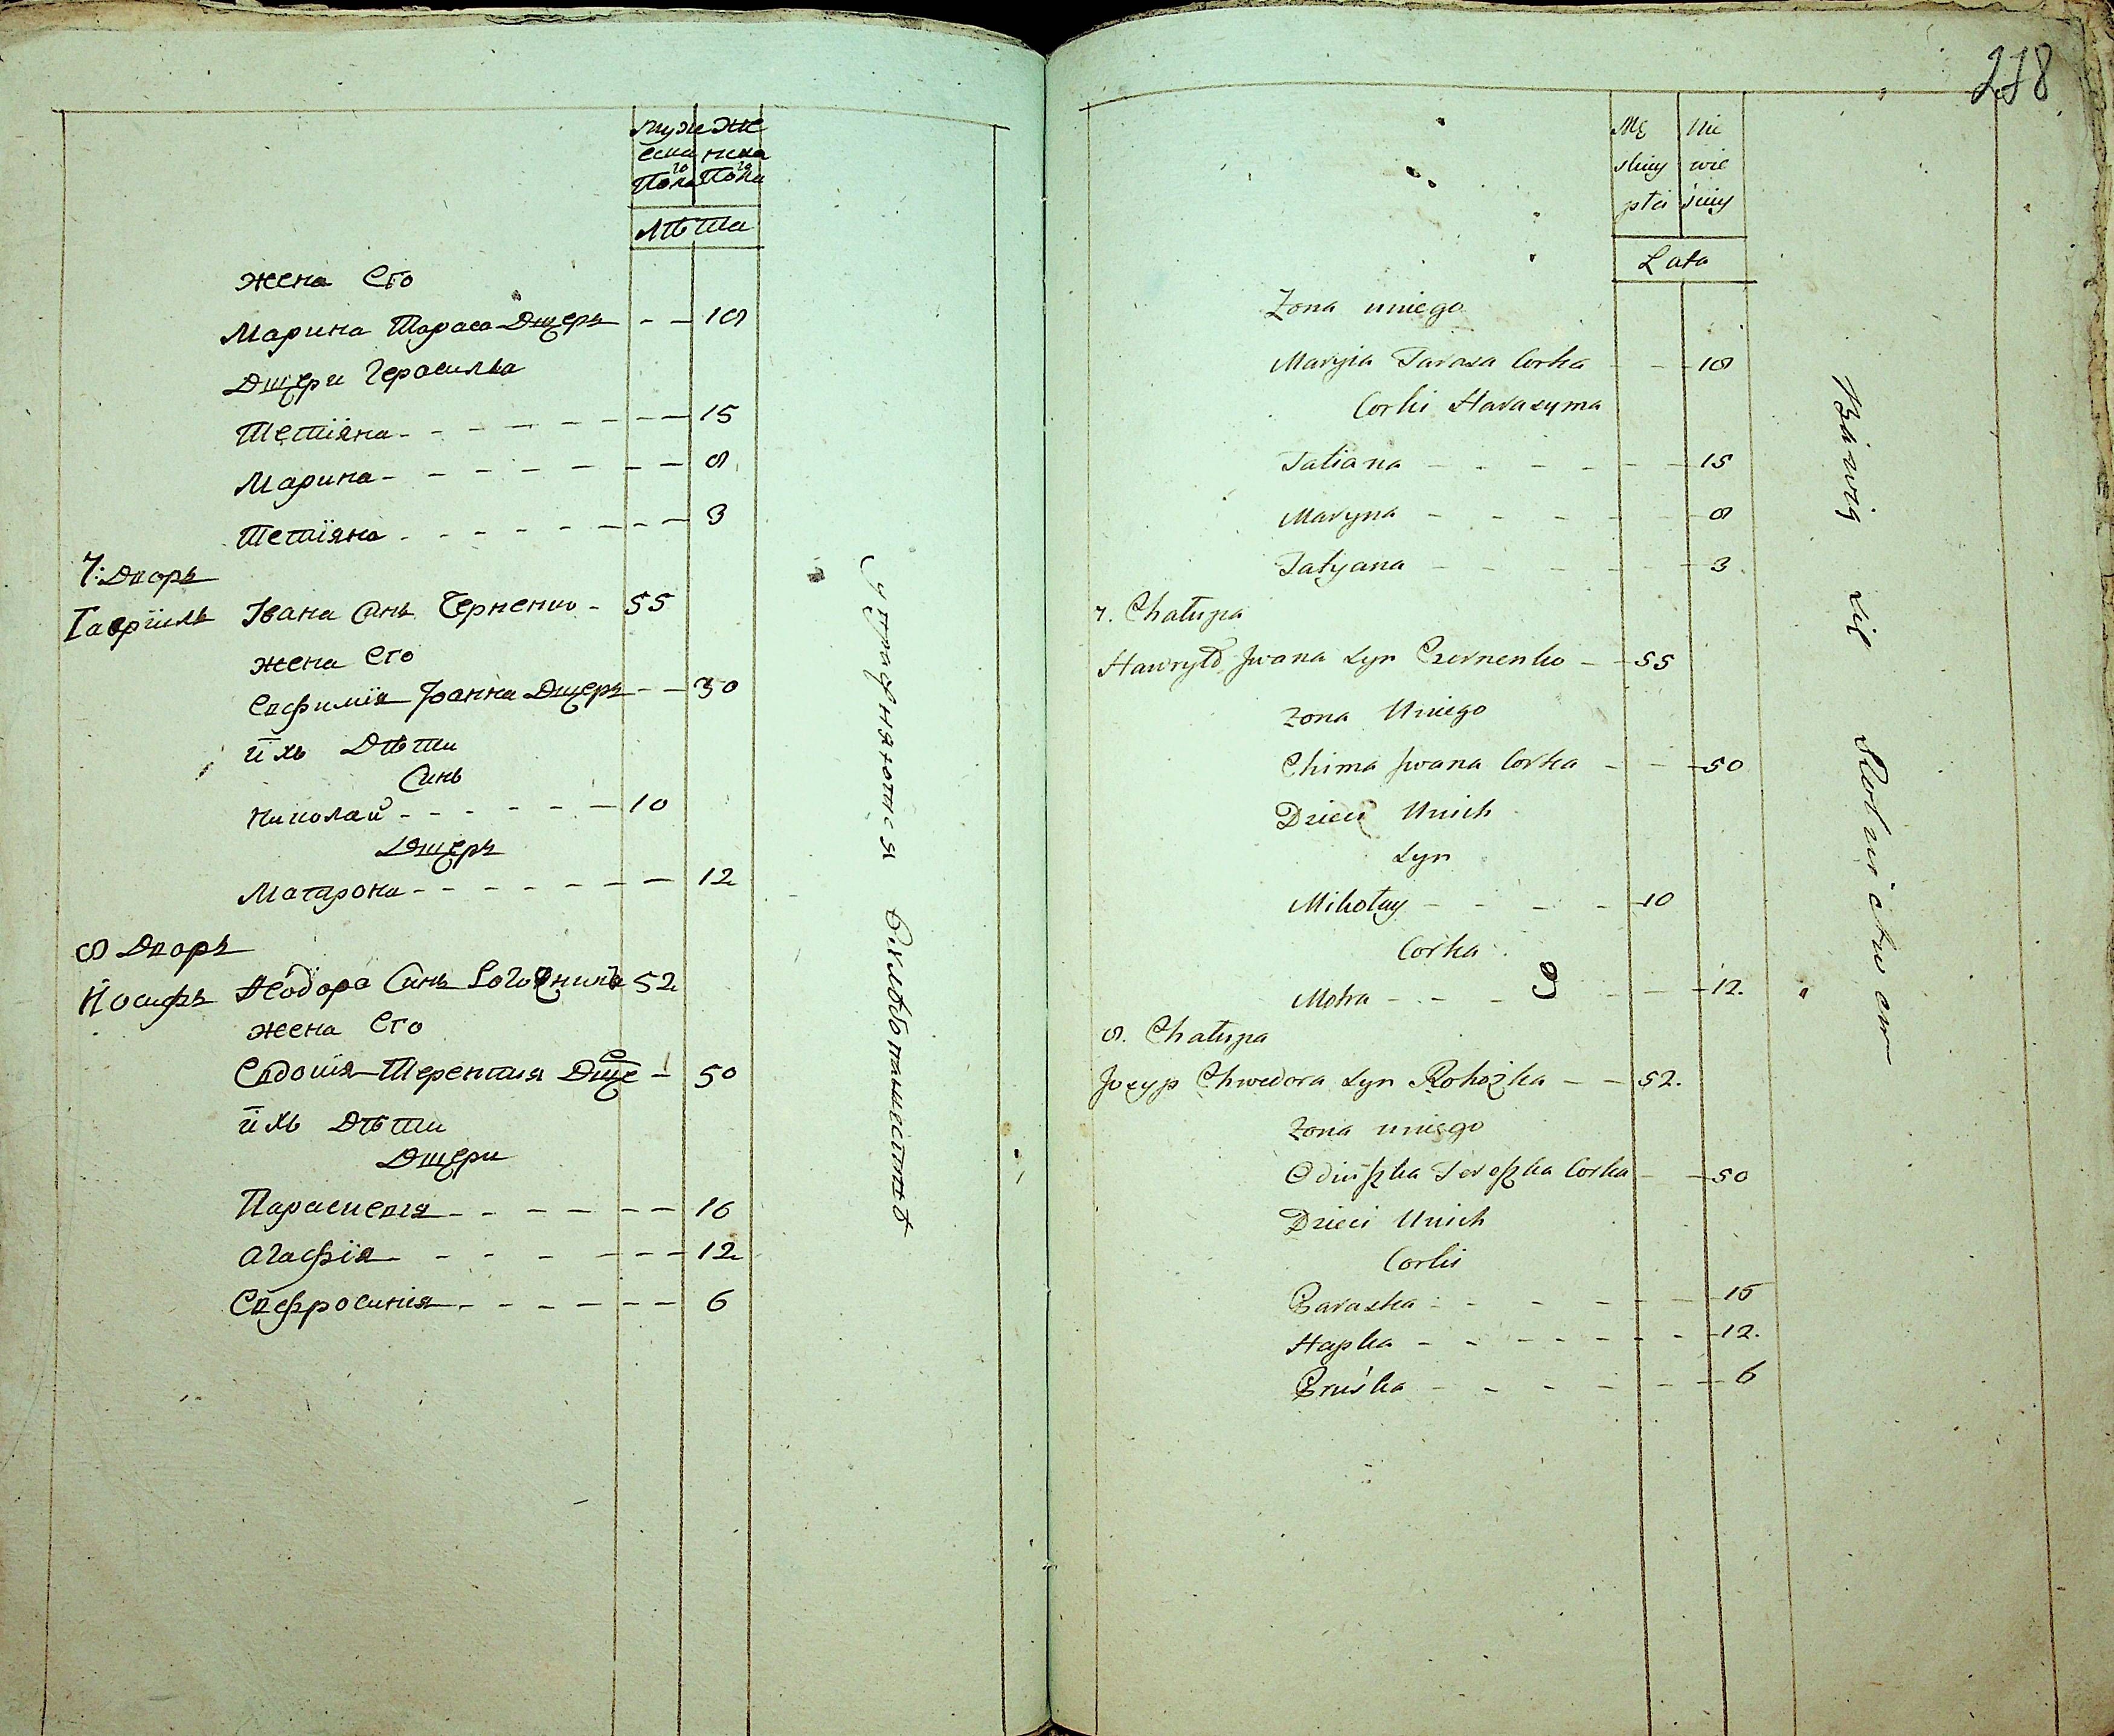 муже
ска
го
Пола
жe
нска
го
Пола
Лѣта
жена Его
Марина Тараса Дщерь - - 18
Дщери Герасима
Тетіяна - - - - - - - 15
Марина - - - - - - - 8
Тетіяна - - - - - - - 3
7: Дворъ
Гавріилъ Івана Синъ Черненко - 55
жена Его
Евфимія Іоанна Дщерь - - 30
ихъ Дѣти
Синъ
Николай - - - - - 10
Дщерь
Матрона - - - - - - - 12
8 Дворъ
Иосифъ Ѳеодора Синъ 52
жена Его
Евдокія Терентия Дще - 50
ихъ Дѣти
Дщери
Параскевія - - - - - - 16
Агафія - - - - - - - 12
Евфросинія - - - - - - 6
Упражняются Вхлѣбопашествѣ
218
Mę
skiey
płci
Nie
wie
śćiey
Lata
Zona uniego
Maryia Tarasa Corka - - 18
Corki Harasyma
Tatiana - - - - - - 15
Maryna - - - - - - 8
Tatyana - - - - - - 3
7. Chałupa
Hawryło Jwana Syn Czernenko - - 55
Zona Uniego
Chima Jwana Corka - - - 50
Dzieci Unich
Syn
Mikołay - - - - - 10
Corka
Motra - - - - - - 12.
8. Chałupa
Jozyp Chwedora Syn Rohożka - - 52.
Zona uniego
Odiuszka Tereszka Corka - - 50
Dzieci Unich
Corki
Paraska - - - - - - 16
Hapka - - - - - - - 12.
Pruśka - - - - - - 6
Bawią się Rolnictwem